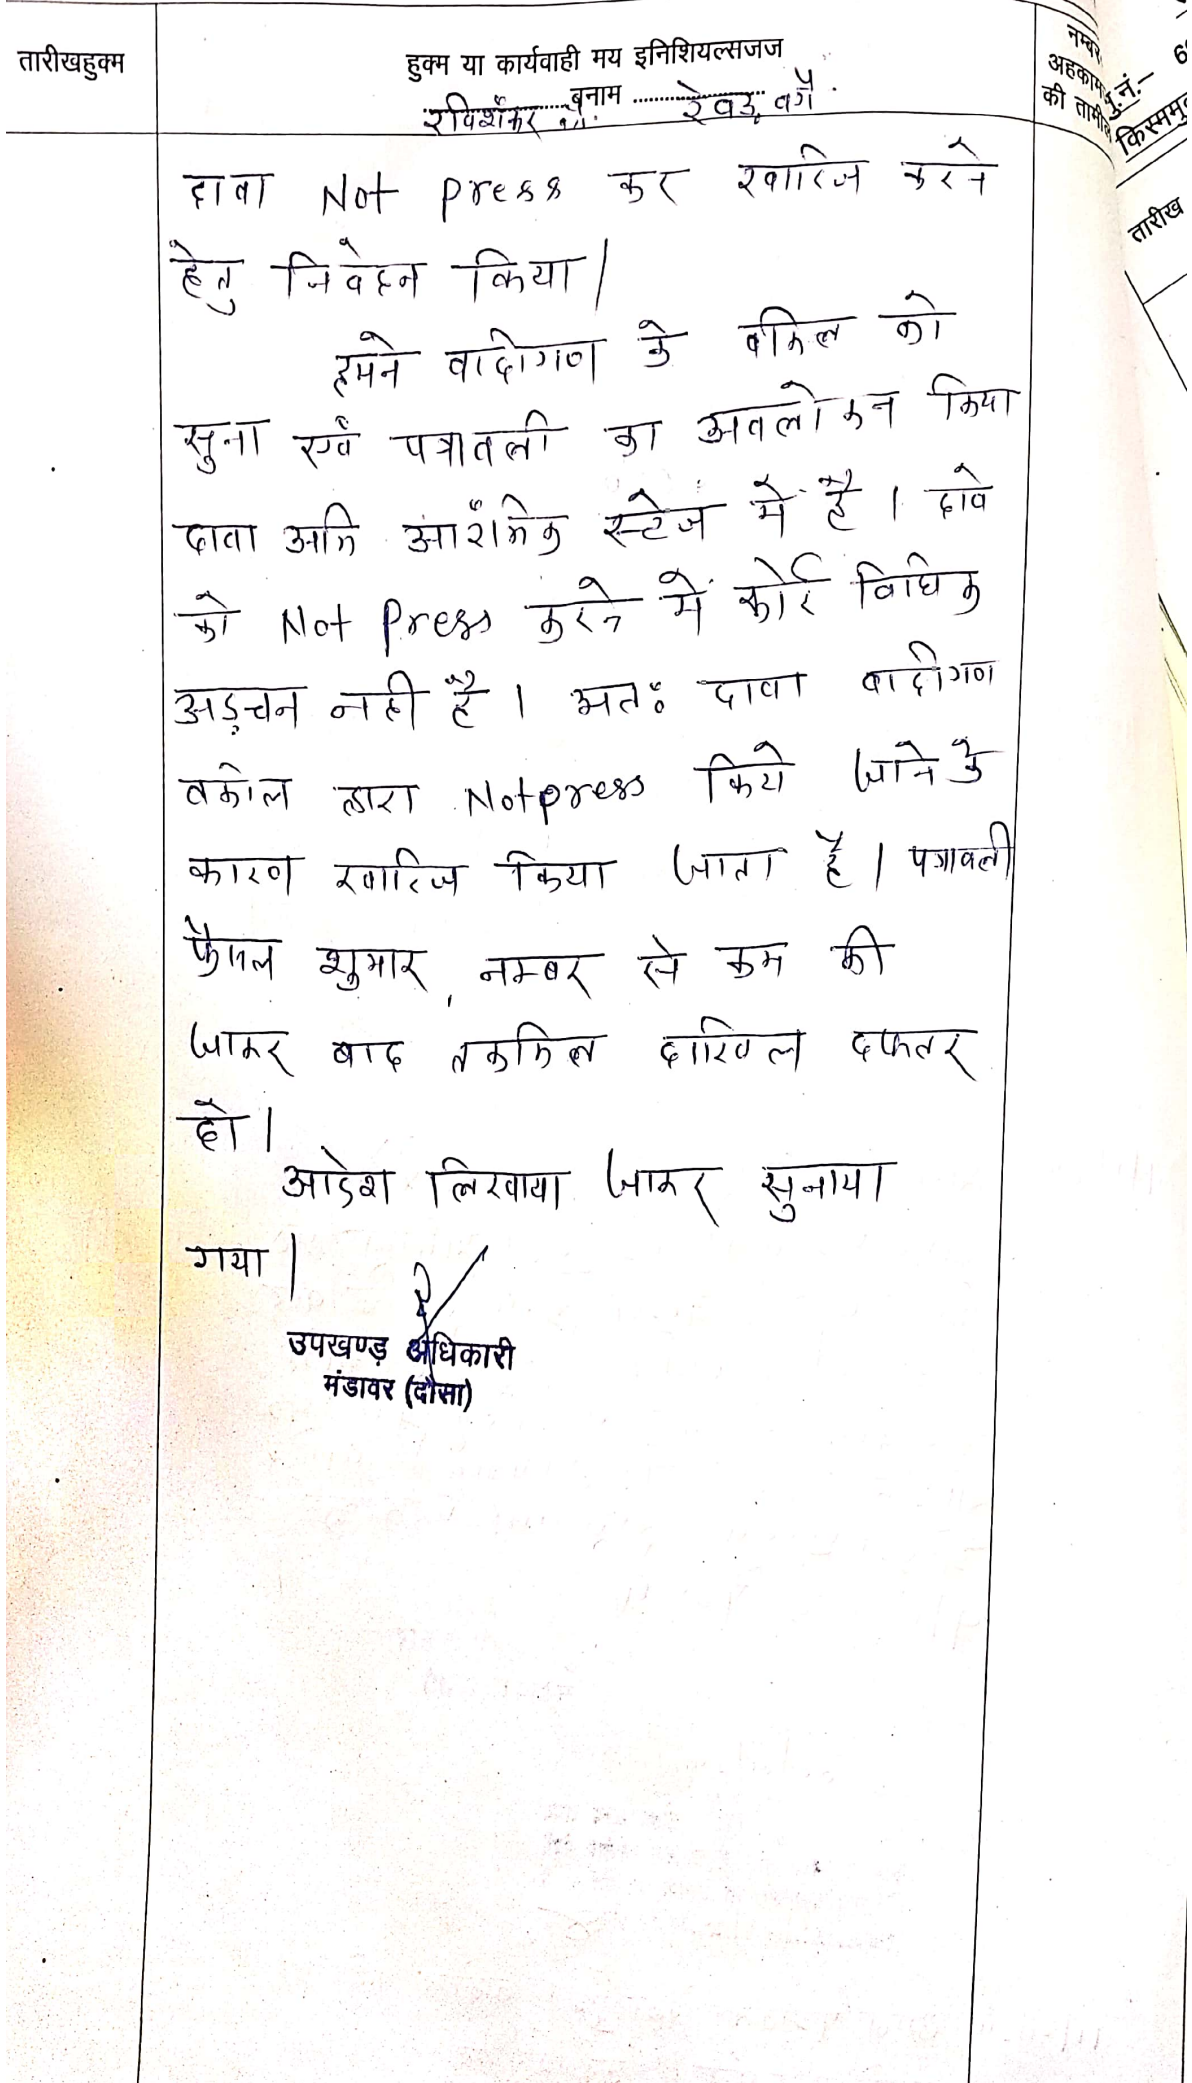 तारीखहुक्म
हुक्म या कार्यवाही मय इनिशियल्सजज
रविशंकर बनाम रेवड़ वगै.
नम्बर
अहकाम
की तामील
पु.नं.- 6
किस्ममु
तारीख
दावा Not press कर खारिज करने
हेतु निवेदन किया।
हमने वादीगण के वकिल को
सुना एवं पत्रावली का अवलोकन किया
दावा अभि आरंभिक स्टेज में है। दावे
को Not Press करने में कोई विधिक
अड़चन नही है। अतः दावा वादीगण
वकील द्वारा Notpress किये जाने के
कारण खारिज किया जाता है। पत्रावली
फैसल शुमार, नम्बर से कम की
जाकर बाद तकमिल दाखिल दफ्तर
हो।
आदेश लिखाया जाकर सुनाया
गया।
उपखण्ड़ अधिकारी
मंडावर (दौसा)